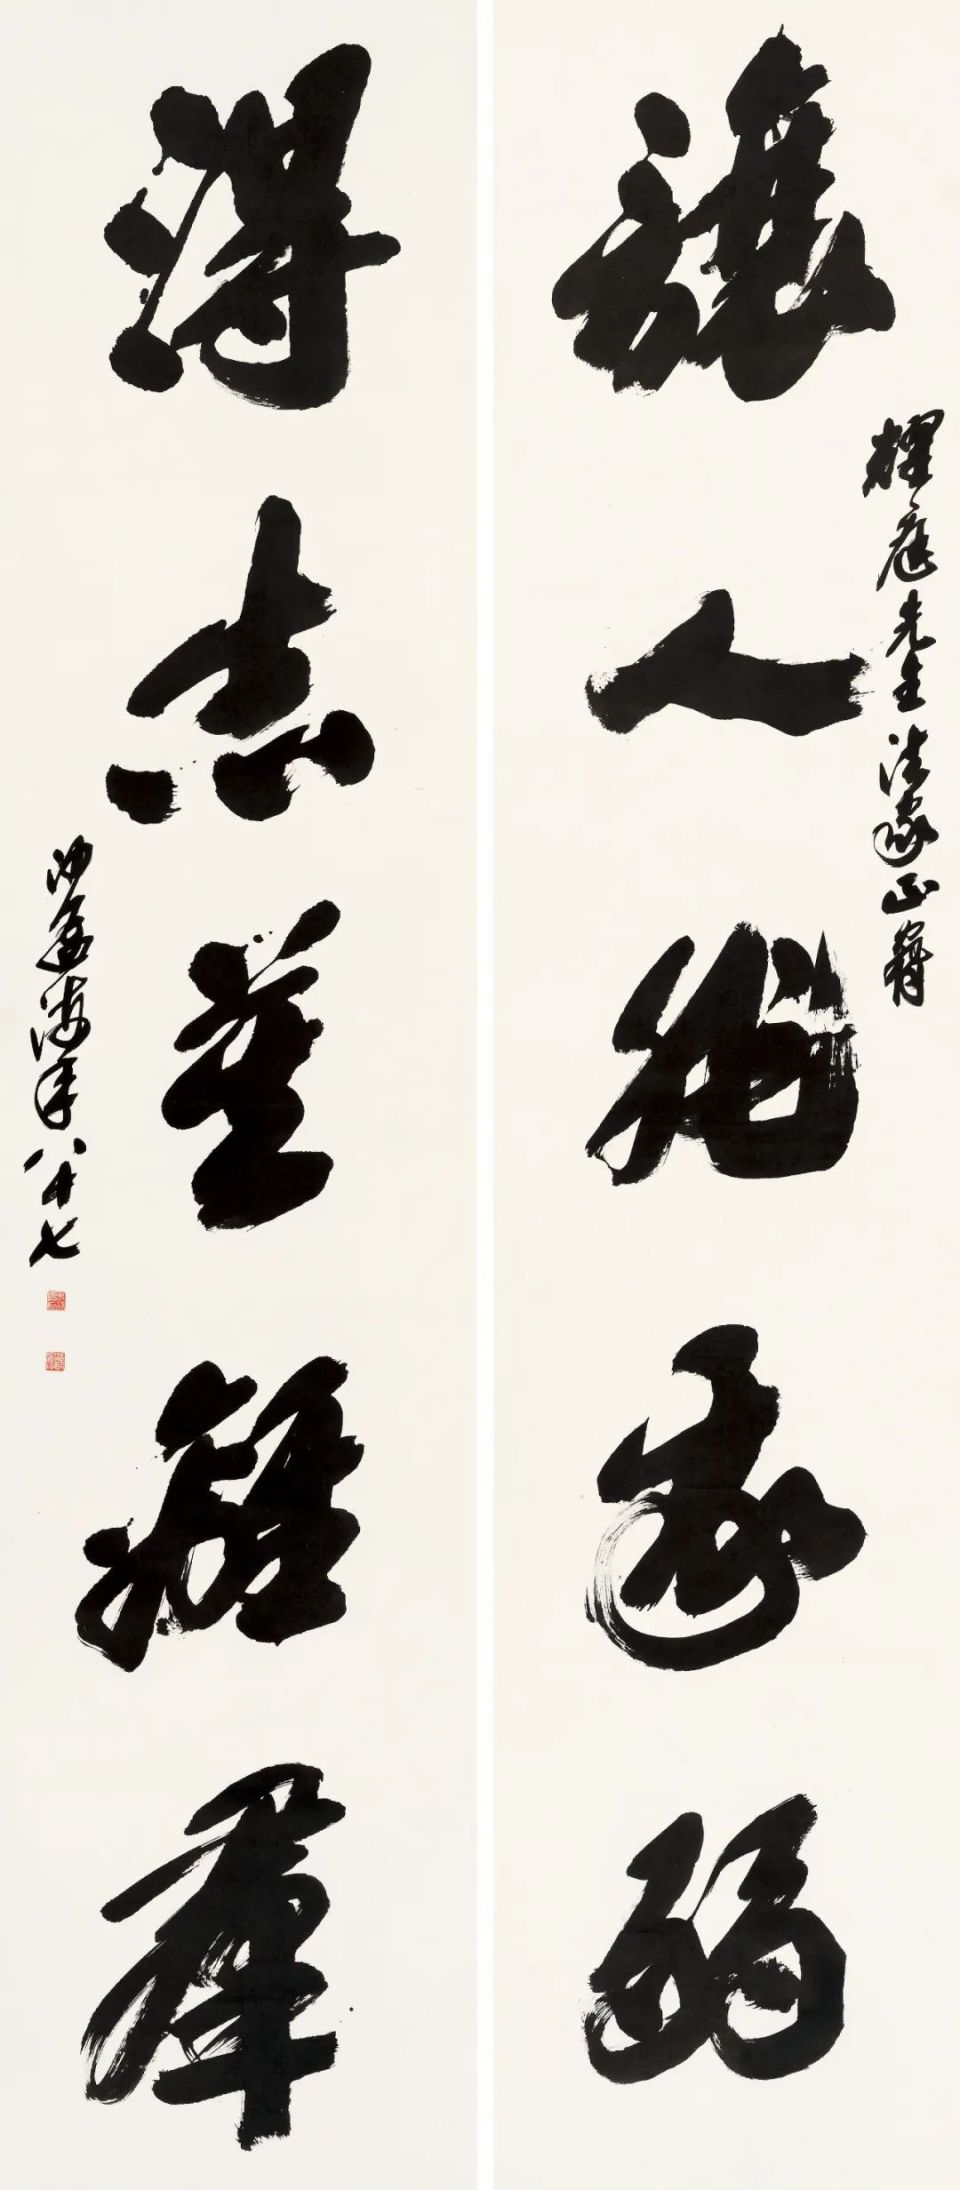 讓人非我弱
耀庭先生法家正審
得志莫離群
沙孟海年八十七